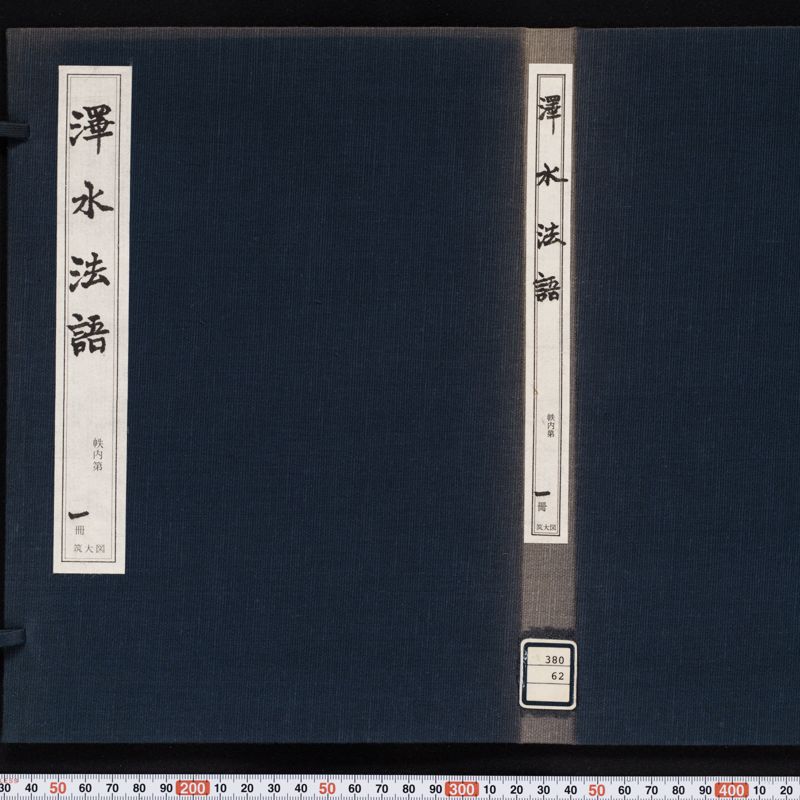 澤水法語
帙内第
一冊
筑大図
澤水法語
帙内第
一冊
筑大図
380
62
30 40 50 60 70 80 90 200 10 20 30 40 50 60 70 80 90 300 10 20 30 40 50 60 70 80 90 400 10 20